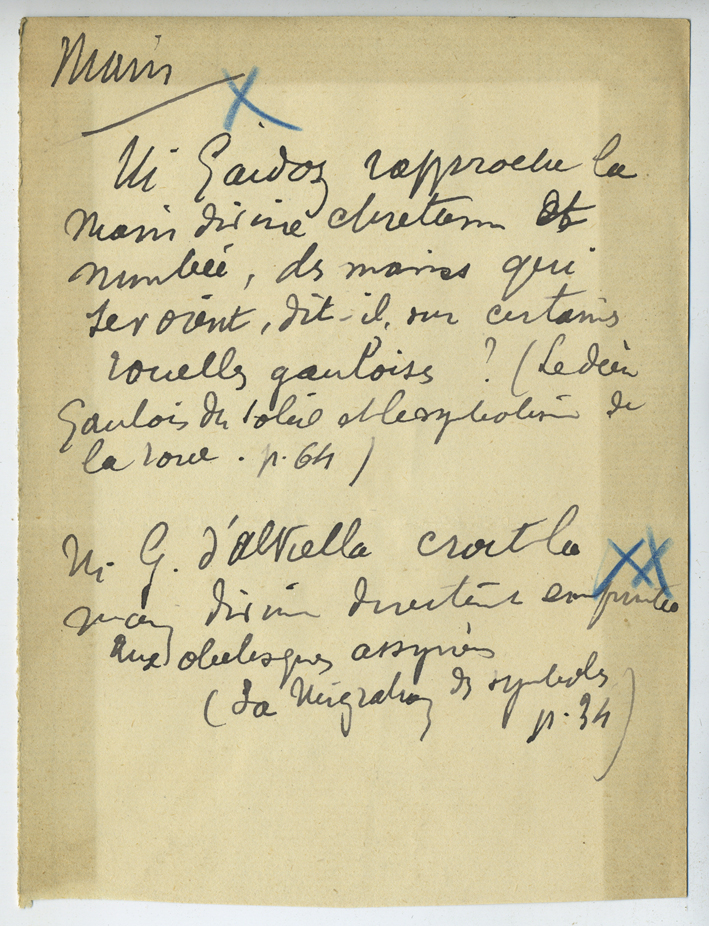 Main
X
M Gaidoz rapproche la
main divine chretienne et
nimbée, des mains qui
servoient, dit-il, sur certains
rouelles gauloises ? (Le dieu
Gaulois du soleil et le symbolisme de
la roue . p. 64 )
M. G. d'Alviella croit la XX
main divine directement empruntée
aux obelesques assyriens
(La Migration des symboles
p. 34 )